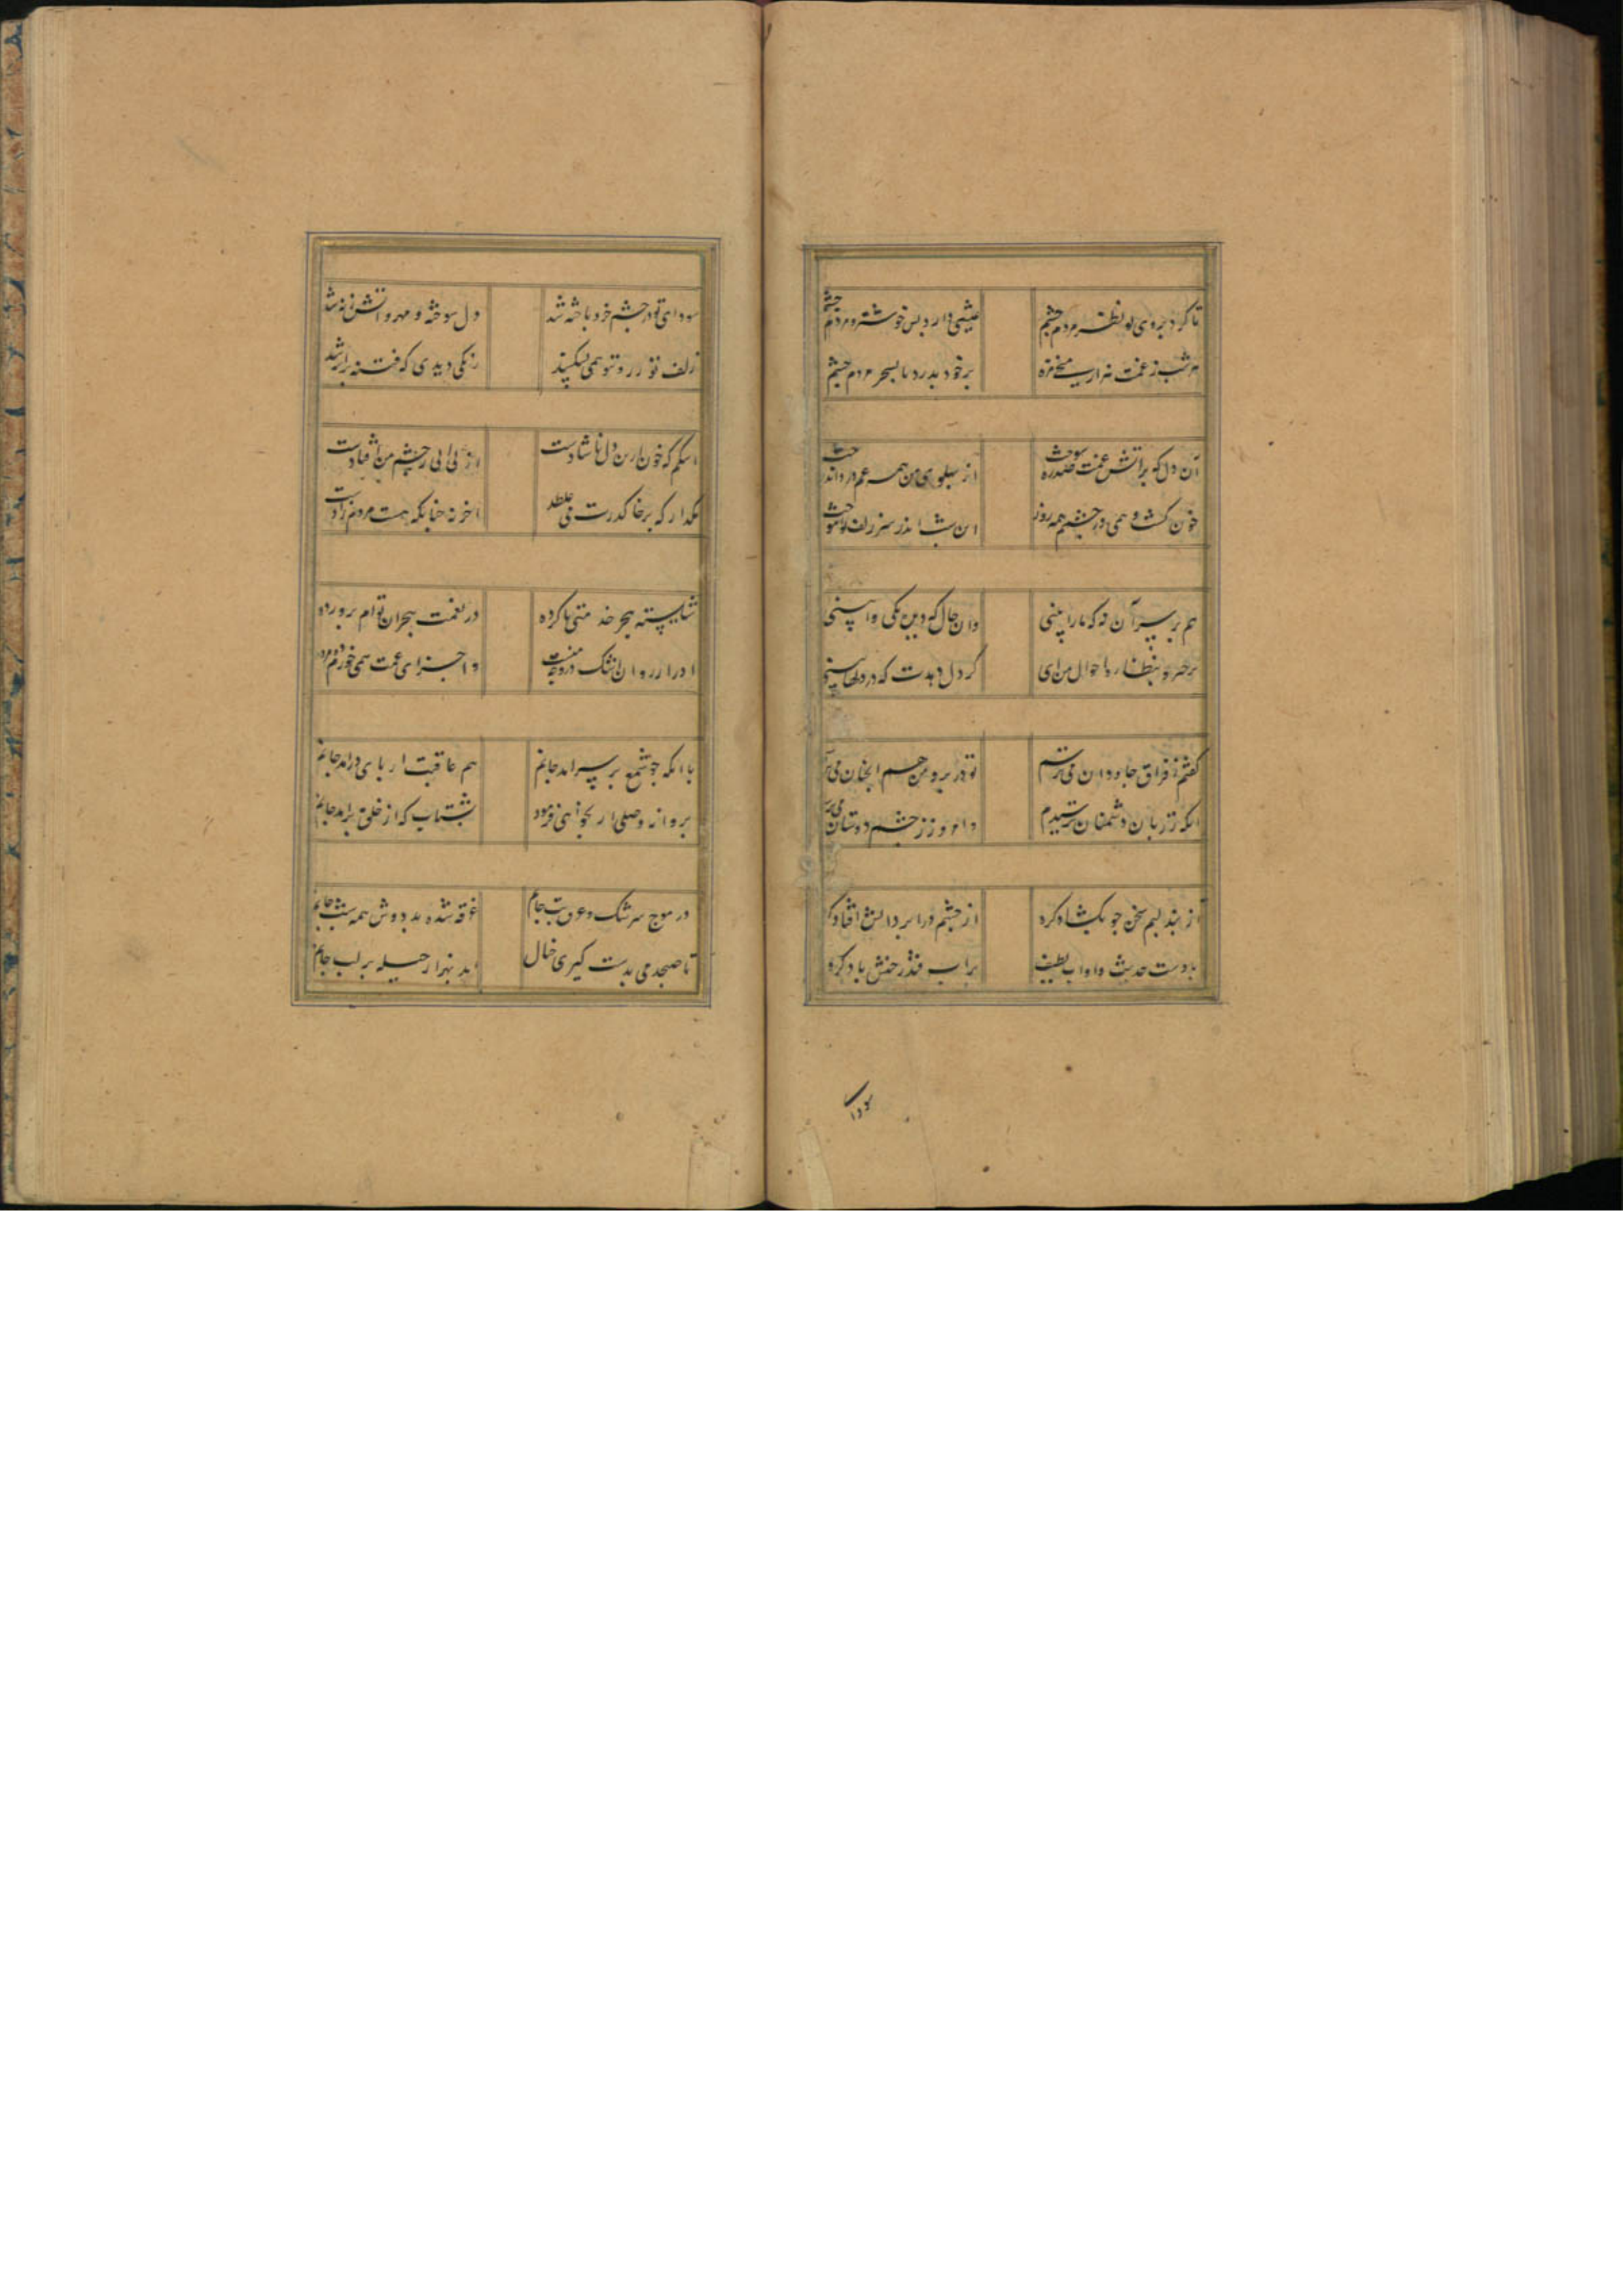 تا کرد بروی تو نظر مردم چشم عیشی دارد بس خوش و مردم چشم
هر شب ز غمت هزار سیخ مژه بر خود بدرد تا بسحر مردم چشم
آن دل که بر آتش غمت صدره سوخت از پهلوی من همه غم و درد اندوخت
خون گشت و همی در چشمم همه روز این شب اندر سر زلف تو
هم بر سر آن نه که ما را بینی وان حال که دیده‌ای
برخیز و بنظاره احوال من آی گر دل دهدت که در
گفتم ز فراق جاودان می ترسم تو در بر و من همچنان می ترسم
آنکه ز زبان دشمنان ترسیدم و امروز ز چشم دوستان می ترسم
از بند لبم سخن چو بگشاد گره از چشم در ابر دانش افتاد گره
بادست حدیث و آب لطیف بر آب فتد چنین باد گره
سودای
سودای تو در چشم خرد باخته شد دل سوخته و
زلف تو ز روی تو همی نشکیبد زنگی دیدی که فتنه بر
اشکم که ز خون این دل ناشادست از بی آبی ز چشم من افتادست
مگذار که بر خاک درت می غلطد آخر نه چنانکه هست مردم زادست
شایسته هجر خدمتی ناکرده در نعمت هجران توام پرورده
ادرار روان اشک در وجه منست و اجزای غمت همی خورم
با آنکه چو شمع بر سر آمد جانم هم عاقبت از پای درآمد جانم
پروانه وصلی ار بخواهی فرمود بشتاب که از خلق برآمد جانم
در موج سرشک و عرق تب جانم غرقه شده بد دوش همه شب جانم
تا صبحدمی بدست گیری خیال آمد بهزار حیله بر لب جانم